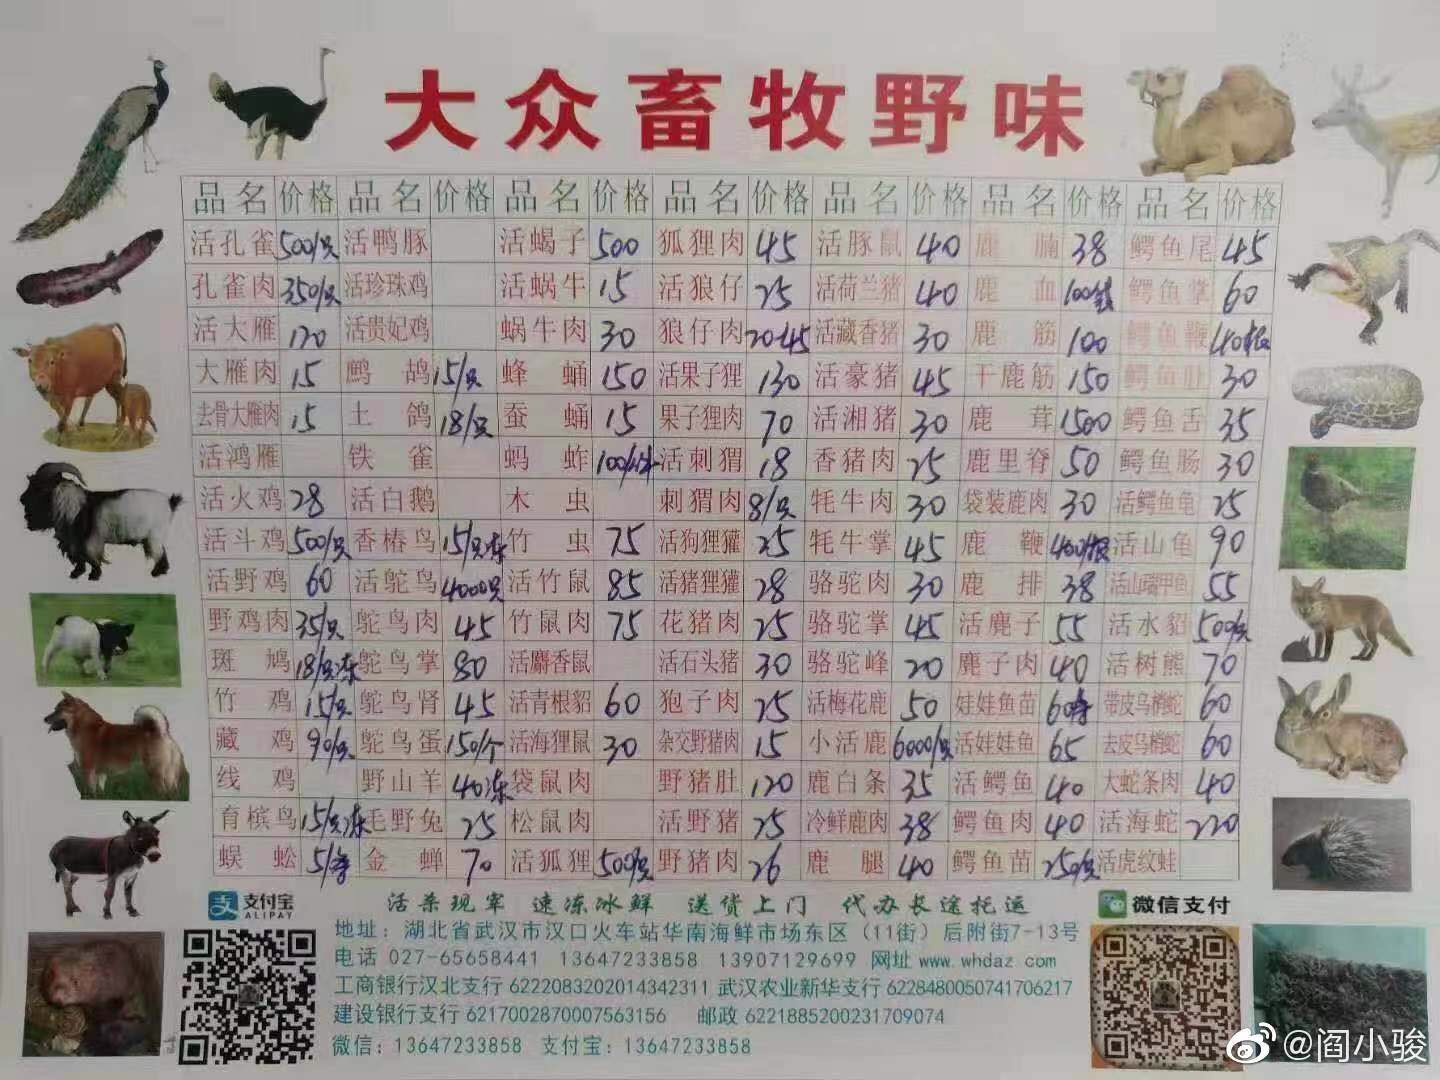 大众畜牧野味
品名 价格 品名 价格 品名 价格 品名 价格 品名 价格 品名 价格 品名 价格
活孔雀 500/只 活鸭豚 活蝎子 500 狐狸肉 45 活豚鼠 40 鹿腩 38 鳄鱼尾 45
孔雀肉 350/只 活珍珠鸡 活蜗牛 15 活狼仔 25 活荷兰猪 40 鹿血 100 鳄鱼掌 60
活大雁 120 活贵妃鸡 蜗牛肉 30 狼仔肉 20-45 活藏香猪 30 鹿筋 100 鳄鱼鞭 40/根
大雁肉 15 鹧鸪 15/只 蜂蛹 150 活果子狸 130 活豪猪 45 干鹿筋 150 鳄鱼肚 30
去骨大雁肉 15 土鸽 18/只 蚕蛹 15 果子狸肉 70 活湘猪 30 鹿茸 1500 鳄鱼舌 35
活鸿雁 铁雀 蚂蚱 100 活刺猬 18 香猪肉 25 鹿里脊 50 鳄鱼肠 30
活火鸡 28 活白鹅 木虫 刺猬肉 8/只 牦牛肉 30 袋装鹿肉 30 活鳄鱼龟 25
活斗鸡 500/只 香椿鸟 15/只冻 竹虫 75 活狗狸獾 25 牦牛掌 45 鹿鞭 400/根 活山龟 90
活野鸡 60 活鸵鸟 4000只 活竹鼠 85 活猪狸獾 28 骆驼肉 30 鹿排 38 活山瑞甲鱼 55
野鸡肉 35/只 鸵鸟肉 45 竹鼠肉 75 花猪肉 25 骆驼掌 45 活麂子 55 活水貂 500/只
斑鸠 18/只冻 鸵鸟掌 80 活麝香鼠 活石头猪 30 骆驼峰 20 麂子肉 40 活树熊 70
竹鸡 15/只 鸵鸟肾 45 活青根貂 60 狍子肉 25 活梅花鹿 50 娃娃鱼苗 60 带皮乌梢蛇 60
藏鸡 90/只 鸵鸟蛋 150/个 活海狸鼠 30 杂交野猪肉 15 小活鹿 6000/只 活娃娃鱼 65 去皮乌梢蛇 60
线鸡 野山羊 40冻 袋鼠肉 野猪肚 120 鹿白条 35 活鳄鱼 40 大蛇条肉 40
育槟鸟 15/只冻 毛野兔 25 松鼠肉 活野猪 25 冷鲜鹿肉 38 鳄鱼肉 40 活海蛇 220
蜈蚣 5/条 金蝉 70 活狐狸 500/只 野猪肉 26 鹿腿 40 鳄鱼苗 250/只 活虎纹蛙
支付宝 ALIPAY 活杀现宰 速冻冰鲜 送货上门 代办长途托运 微信支付
地址：湖北省武汉市汉口火车站华南海鲜市场东区（11街）后附街7-13号
电话 027-65658441 13647233858 13907129699 网址 www.whdaz.com
工商银行汉北支行 6222083202014342311 武汉农业新华支行 6228480050741706217
建设银行支行 6217002870007563156 邮政 6221885200231709074
微信：13647233858 支付宝：13647233858
@阎小骏